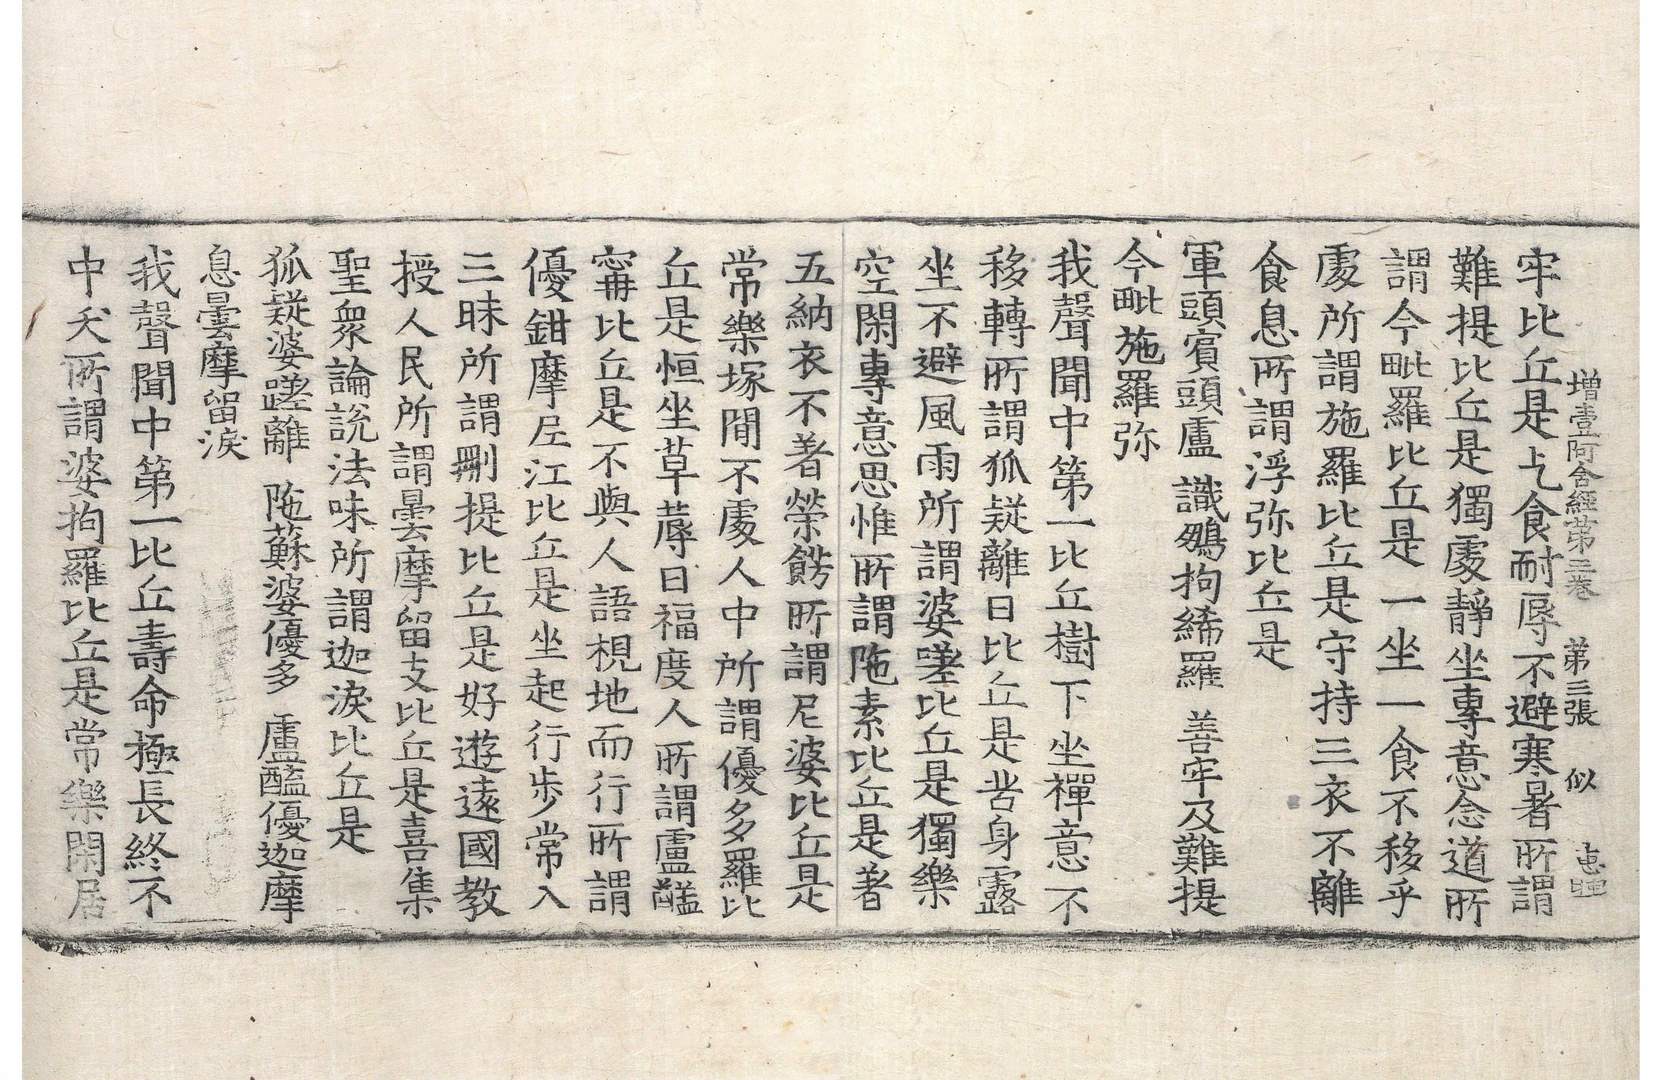 增壹阿含經第三卷 第三張 似
牢比丘是乞食耐辱不避寒暑所謂
難提比丘是獨處靜坐專意念道所
謂今毗羅比丘是一坐一食不移乎
處所謂施羅比丘是守持三衣不離
食息所謂浮弥比丘是
軍頭賓頭盧 識鵽拘絺羅 善牢及難提
今毗施羅弥
我聲聞中第一比丘樹下坐禪意不
移轉所謂狐疑離曰比丘是苦身露
坐不避風雨所謂婆嗟比丘是獨樂
空閑專意思惟所謂陁素比丘是著
五納衣不著榮餝所謂尼婆比丘是
常樂塚閒不處人中所謂優多羅比
丘是恒坐草蓐日福度人所謂盧醯
甯比丘是不與人語視地而行所謂
優鉗摩尼江比丘是坐起行步常入
三昧所謂刪提比丘是好遊遠國教
授人民所謂曇摩留支比丘是喜集
聖衆論說法味所謂迦淚比丘是
狐疑婆蹉離 陁蘇婆優多 盧醯優迦摩
息曇摩留淚
我聲聞中第一比丘壽命極長終不
中夭所謂婆拘羅比丘是常樂閑居